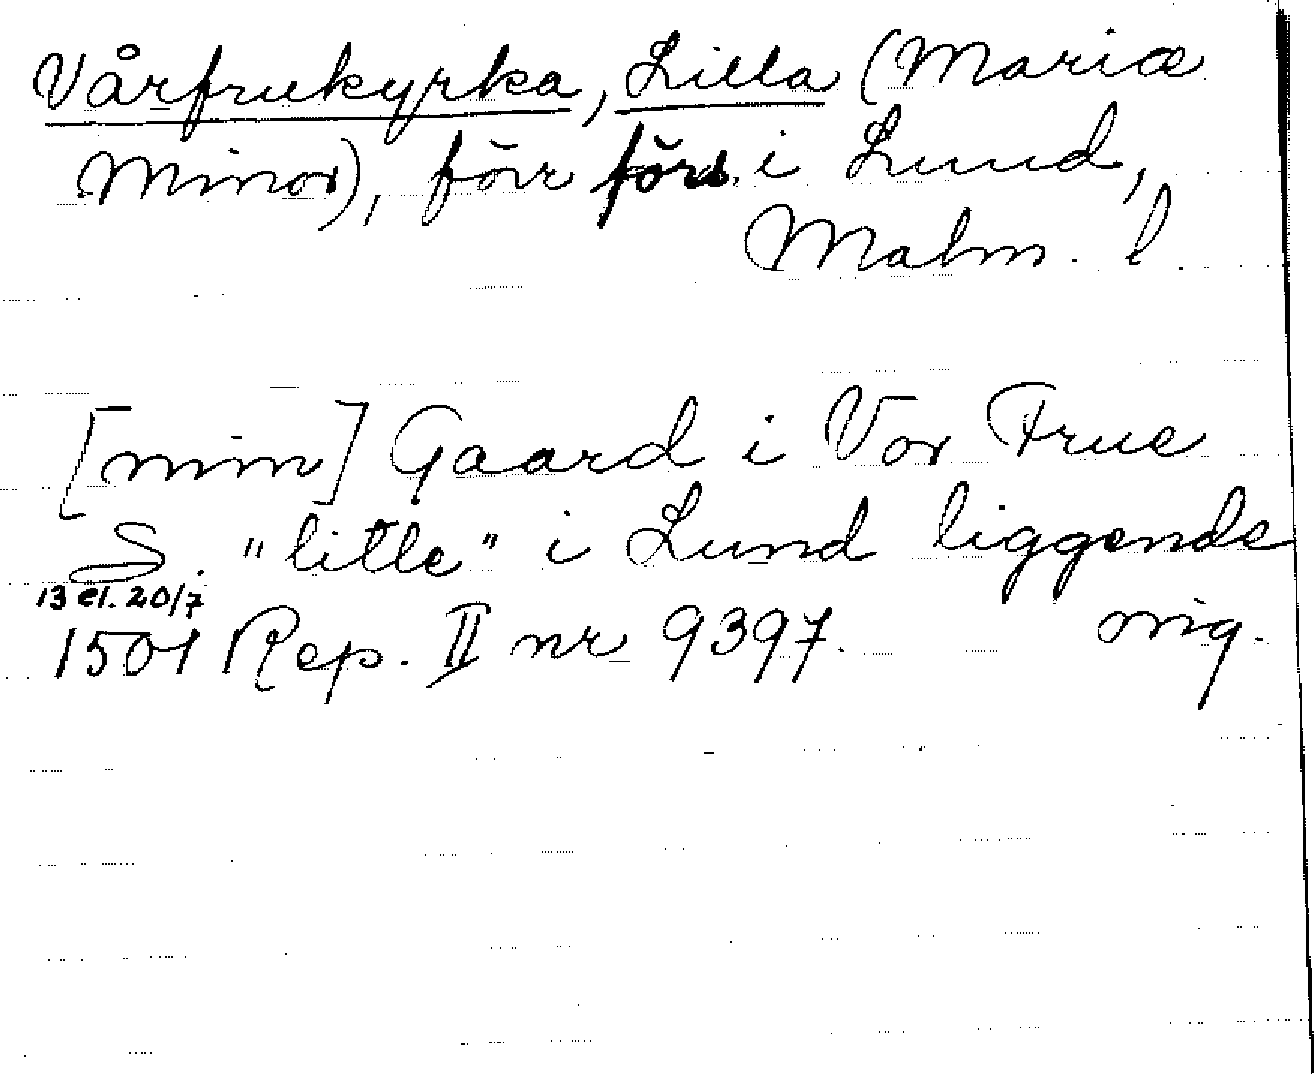 Vårfrukyrka, Lilla (Mariæ
Minor), förr förs. i Lund,
Malm. l.
[min] Gaard i Vor Frue
S. "litle" i Lund liggende
13 el. 20/7
1501 Rep. II nr 9397. orig.